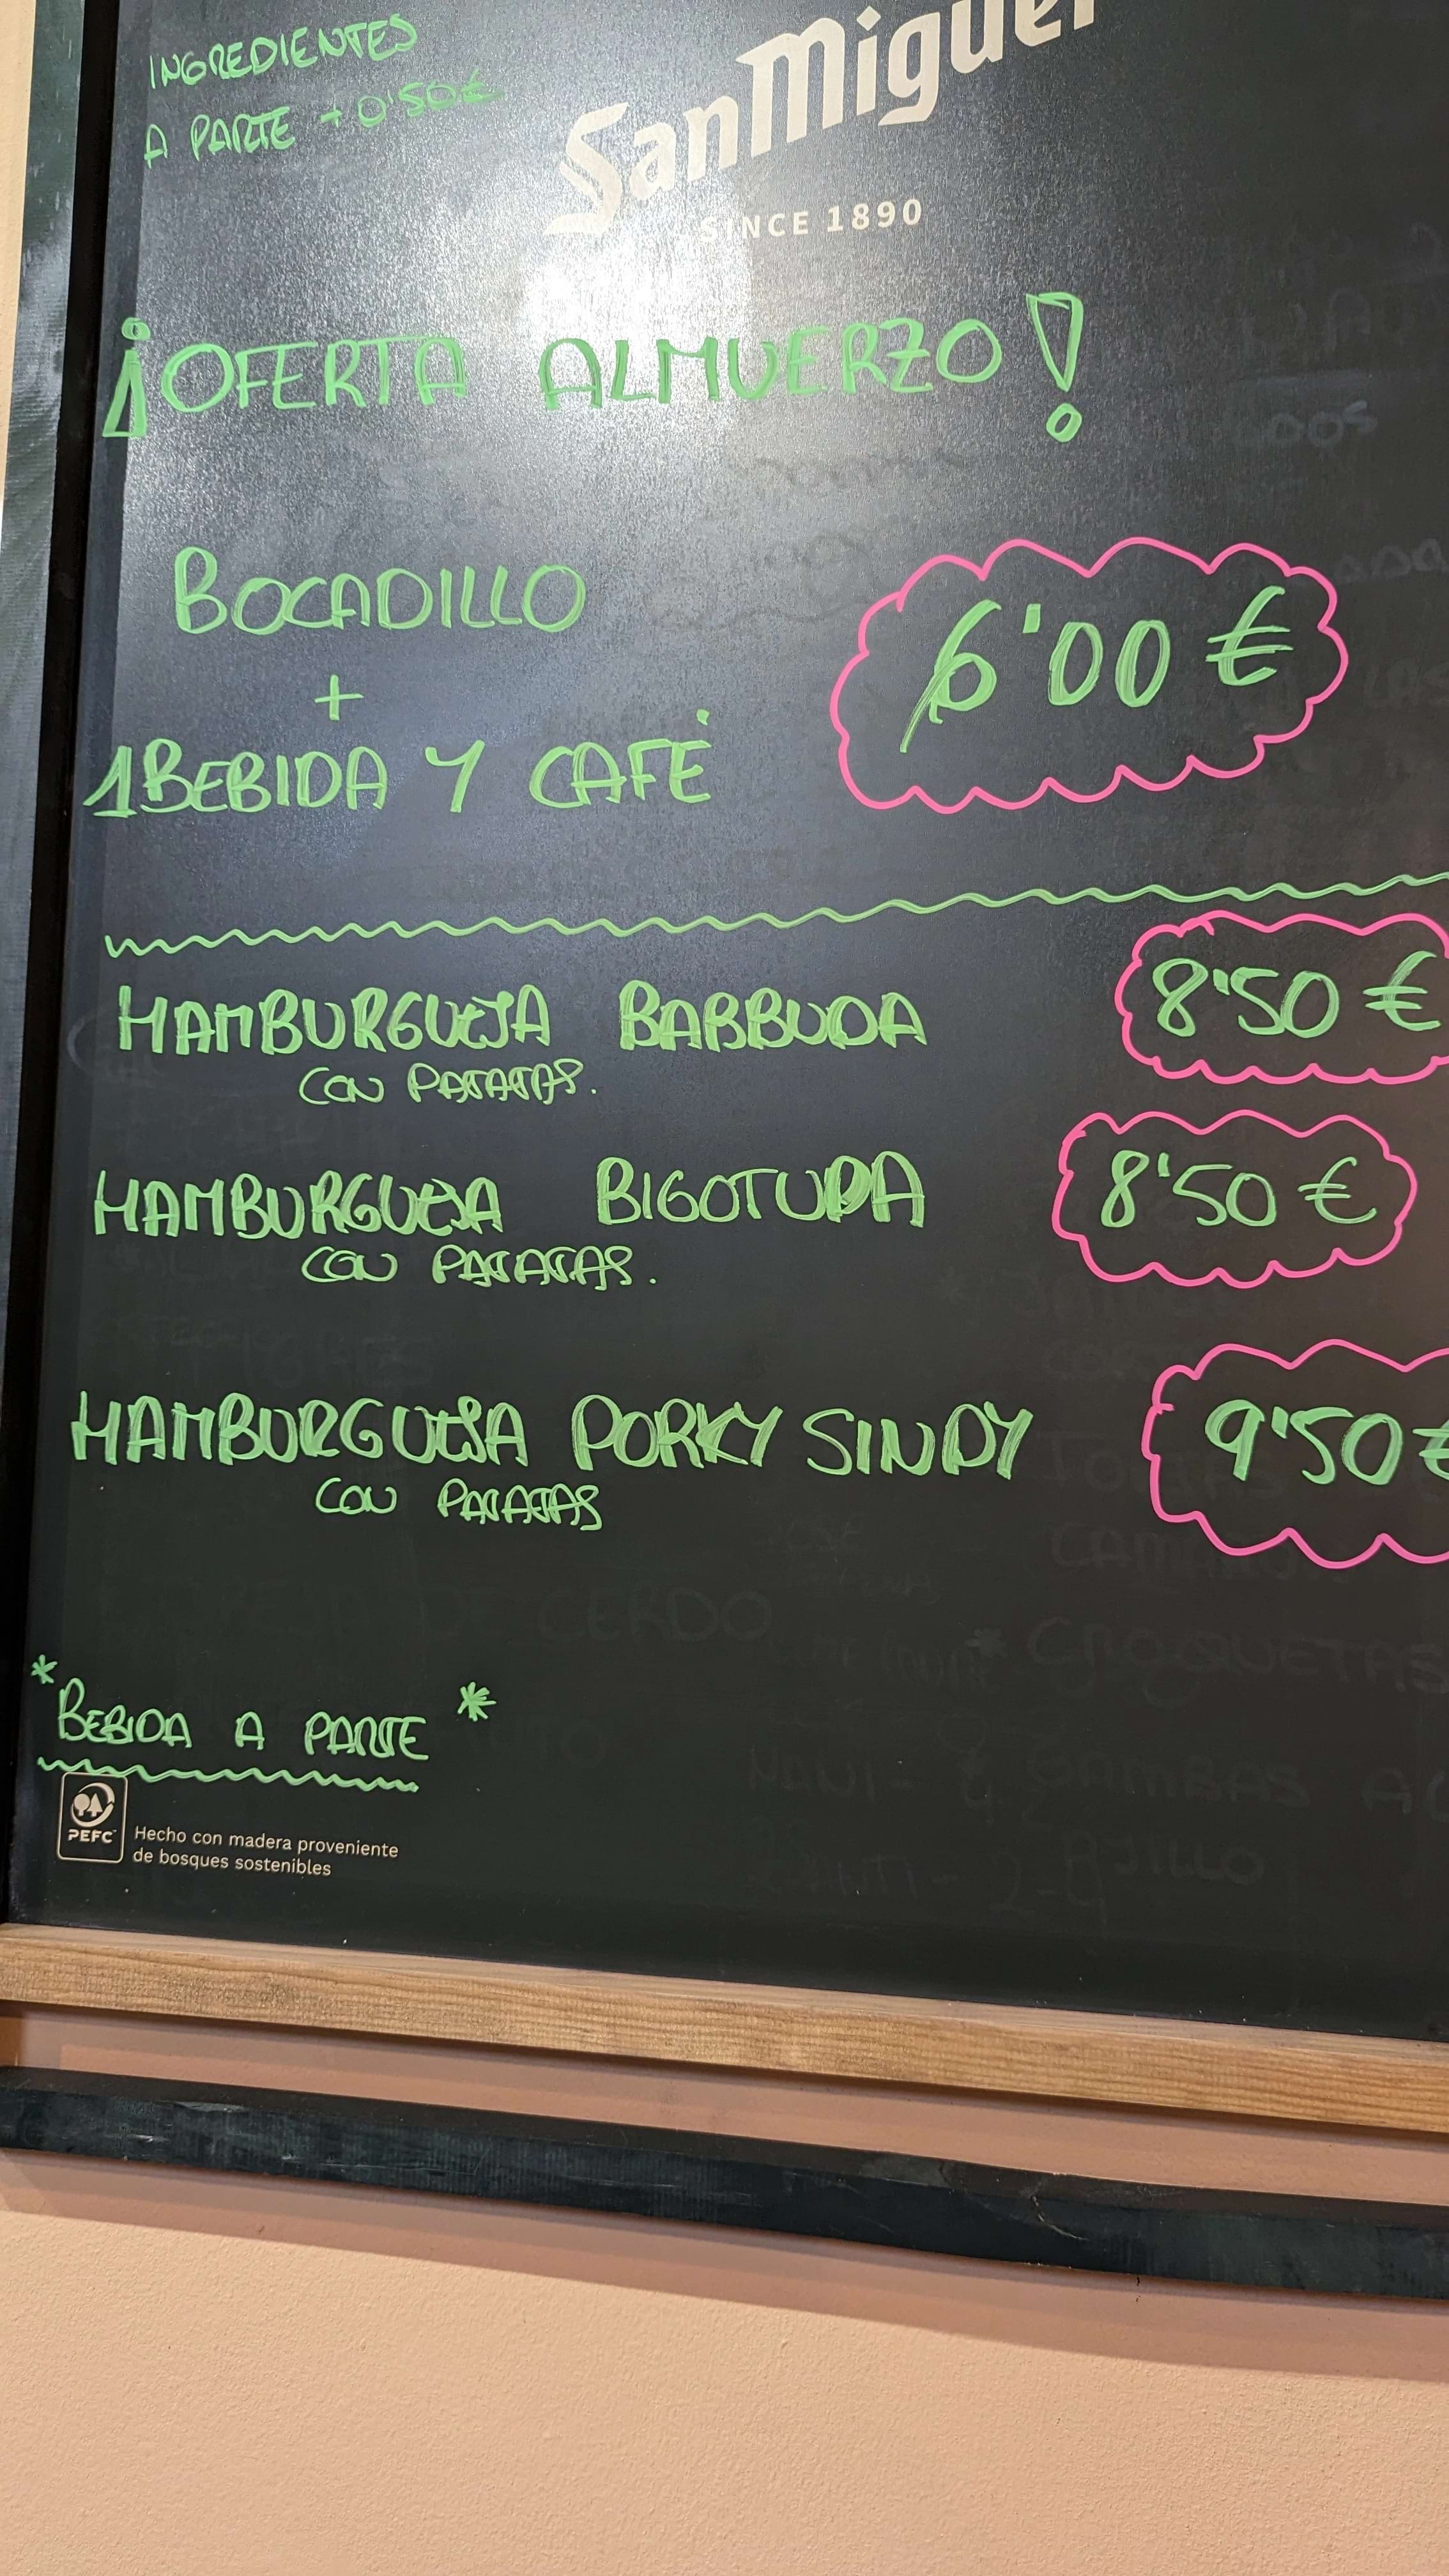 INGREDIENTES
A PARTE +0'50€
SanMiguel
SINCE 1890
¡OFERTA ALMUERZO!
BOCADILLO
+
1 BEBIDA Y CAFÉ
6'00 €
HAMBURGUESA BARBUDA 8'50 €
CON PATATAS.
HAMBURGUESA BIGOTUDA 8'50 €
CON PATATAS.
HAMBURGUESA PORKY SINDY 9'50€
CON PATATAS
*BEBIDA A PARTE*
PEFC
Hecho con madera proveniente
de bosques sostenibles